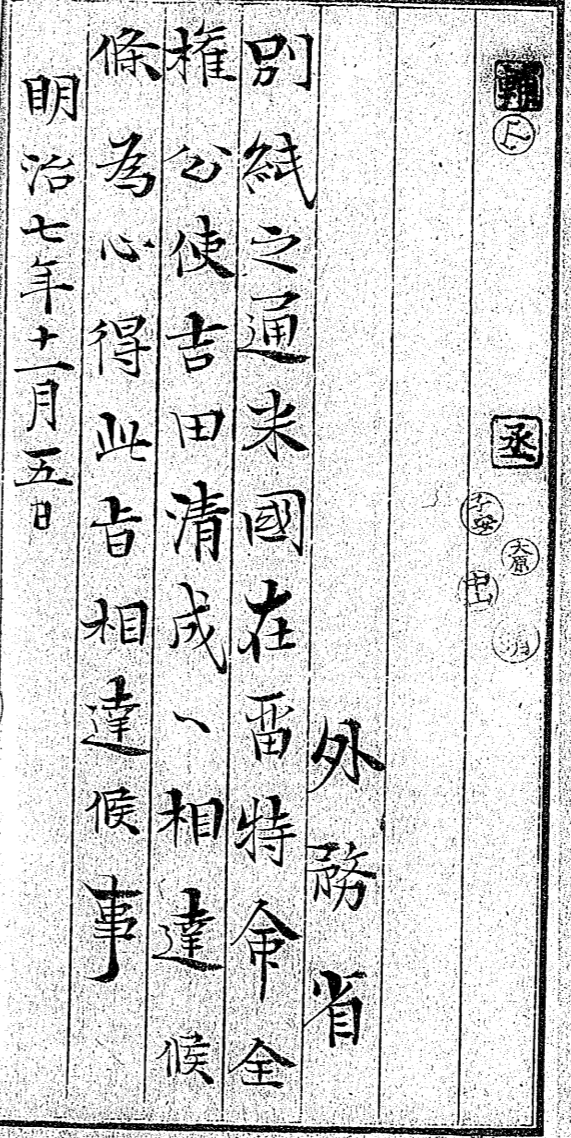 輔
丞
大原
中山
外務省
別紙之通米國在留特命全
権公使吉田清成ヘ相達候
條為心得此旨相達候事
明治七年十一月五日